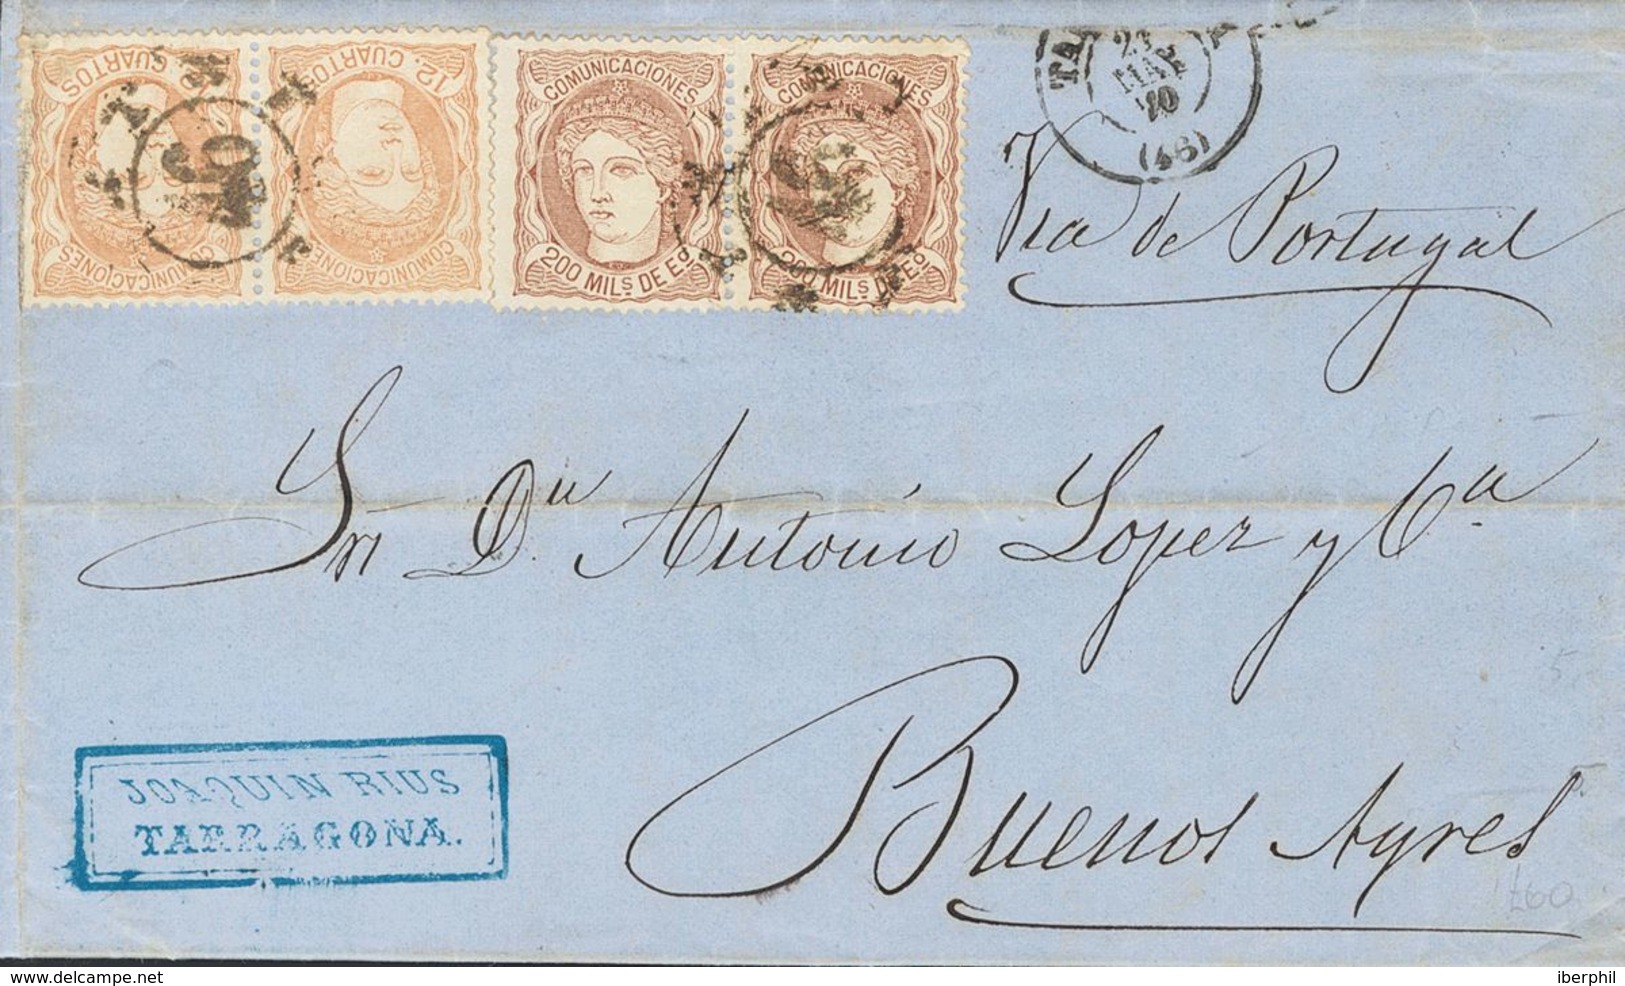 12. CUARTOS
CUARTOS
COMUNICACIONES
COMUNICACIONES
COMUNICACIONES
COMUNICACIONES
200 MILS DE Eº
200 MILS DE Eº
MAR
(46)
Via de Portugal
Sr. Dn. Antonio Lopez y Cia
Buenos Ayres
JOAQUIN RIUS
TARRAGONA.
£60
delcampe.net
iberphil